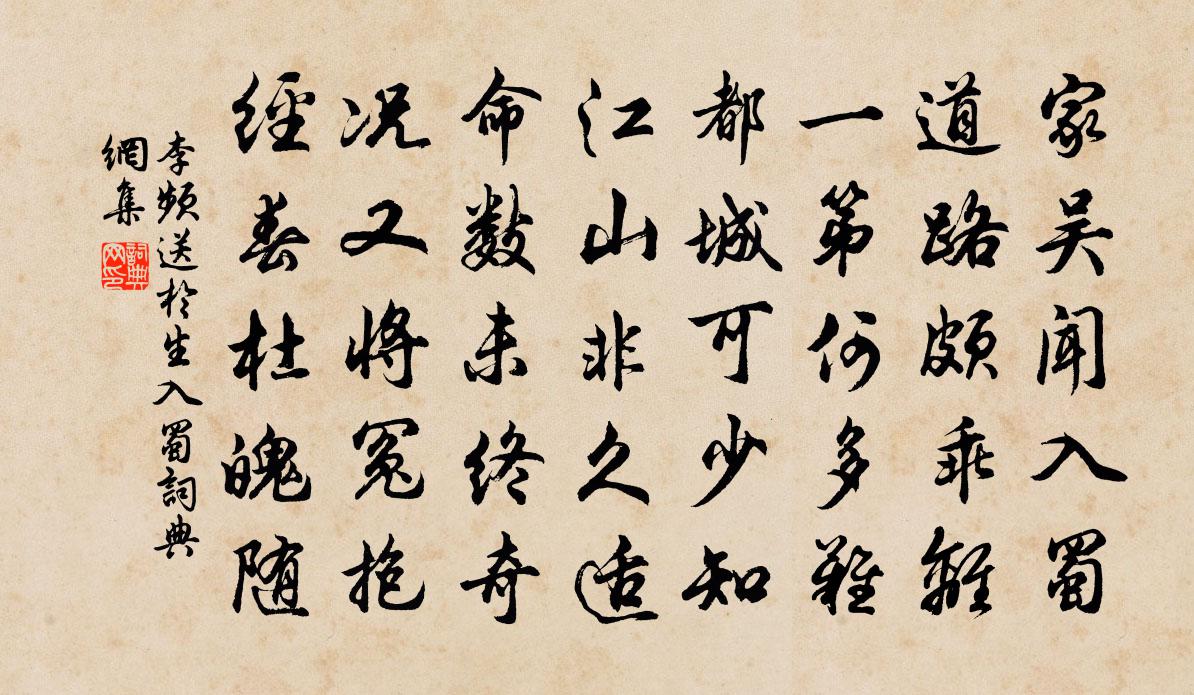 家吴闻入蜀
道路颇乖離
一第何多難
都城可少知
江山非久适
命數未终奇
况又将冤抱
經春杜魄随
李频送於生入蜀詞典
網集
詞典
网印